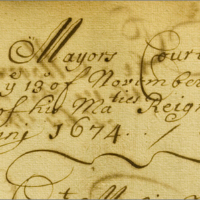 Mayors Court
y 13 of November
of his Ma ties Reign
1674